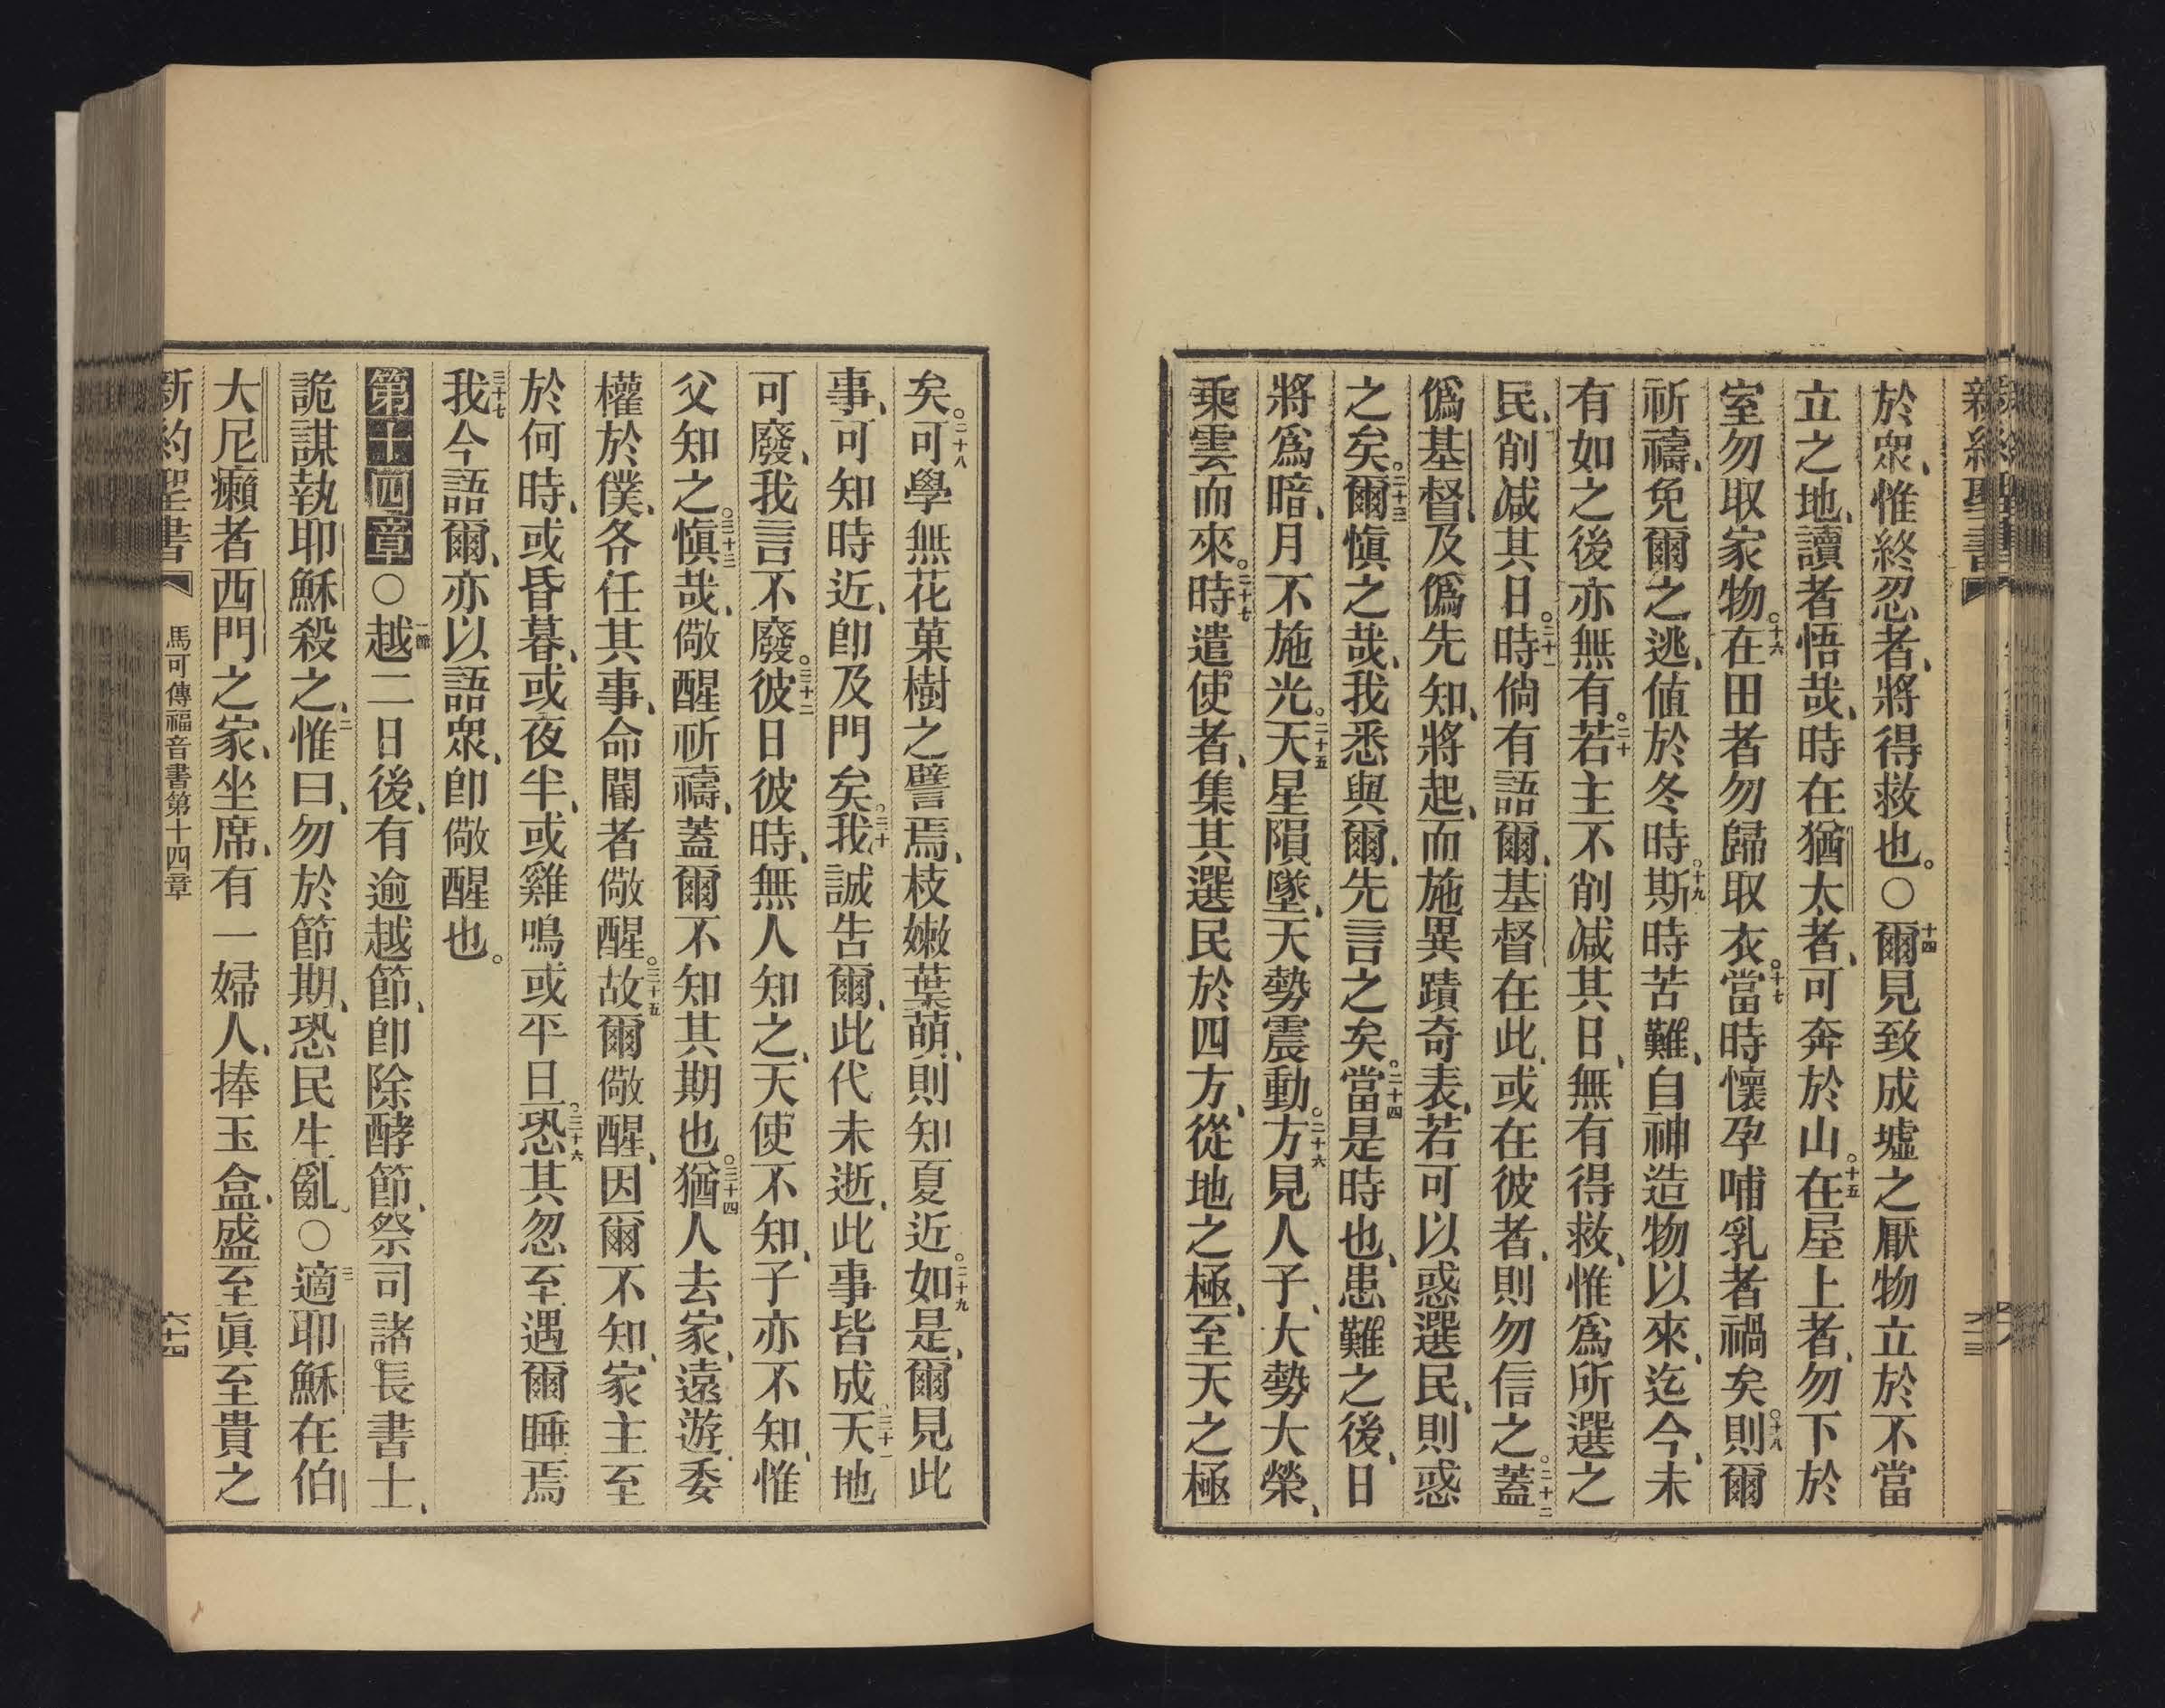 新約聖書
六十三
於眾、惟終忍者、將得救也。〇十四爾見致成墟之厭物立於不當
立之地、讀者悟哉、時在猶太者、可奔於山。十五在屋上者、勿下於
室勿取家物。十六在田者勿歸取衣。十七當時懷孕哺乳者禍矣。十八則爾
祈禱、免爾之逃、値於冬時。十九斯時苦難、自神造物以來、迄今、未
有如之後亦無有。二十若主不削减其日、無有得救、惟爲所選之
民、削减其日。二十一時倘有語爾、基督在此、或在彼者、則勿信之。二十二蓋
僞基督、及僞先知、將起、而施異蹟奇表、若可以惑選民、則惑
之矣。二十三爾愼之哉、我悉與爾、先言之矣。二十四當是時也、患難之後、日
將爲暗、月不施光。二十五天星隕墜、天勢震動。二十六方見人子、大勢大榮、
乘雲而來。二十七時遣使者、集其選民於四方、從地之極、至天之極
矣。二十八可學無花菓樹之譬焉、枝嫩葉萌、則知夏近。二十九如是、爾見此
事、可知時近、卽及門矣。三十我誠告爾、此代未逝、此事皆成、三十一天地
可廢、我言不廢。三十二彼日彼時、無人知之、天使不知、子亦不知、惟
父知之。三十三愼哉、儆醒祈禱、蓋爾不知其期也。三十四猶人去家、遠遊、委
權於僕、各任其事、命閽者儆醒。三十五故爾儆醒、因爾不知、家主至
於何時、或昏暮、或夜半、或雞鳴或平旦。三十六恐其忽至遇爾睡焉
三十七我今語爾、亦以語眾、卽儆醒也。
第十四章〇一節越二日後、有逾越節、卽除酵節、祭司諸長書士、
詭謀執耶穌殺之、二惟曰、勿於節期、恐民生亂。〇三適耶穌在伯
大尼癩者西門之家、坐席、有一婦人、捧玉盒、盛至眞至貴之
新約聖書
馬可傳福音書第十四章
六十四